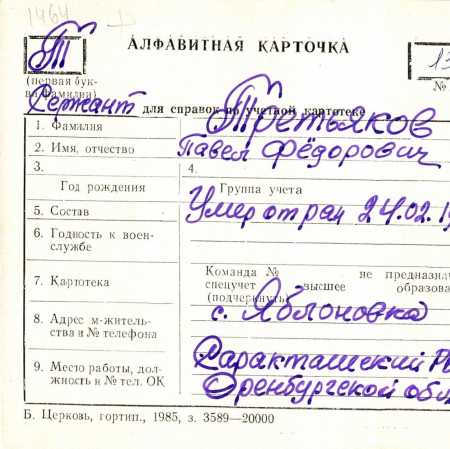 1464
АЛФАВИТНАЯ КАРТОЧКА
Т
13
(первая бук-
ва фамилии)
№
Сержант для справок по учетной картотеке
1. Фамилия Третьяков
2. Имя, отчество Павел Фёдорович
3. 4.
Год рождения Группа учета
5. Состав Умер от ран 24.02.19
6. Годность к воен-
службе
Команда № не предназнач
7. Картотека спецучет высшее образова
(подчеркнуть)
с. Яблоновка
8. Адрес м-житель-
ства и № телефона
Саракташский
9. Место работы, дол-
жность и № тел. ОК
Оренбургской обл
Б. Церковь, гортип., 1985, з. 3589—20000